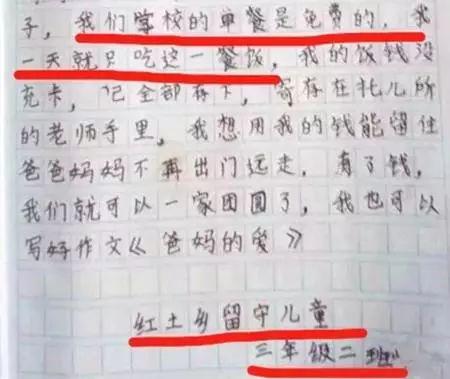 子，我们学校的单餐是免费的，我
一天就只吃这一餐饭，我的饭钱没
充卡，已全部存下，寄存在托儿所
的老师手里，我想用我的钱能留住
爸爸妈妈不再出门远走，有了钱，
我们就可以一家团圆了，我也可以
写好作文《爸妈的爱》
红土乡留守儿童
三年级二班